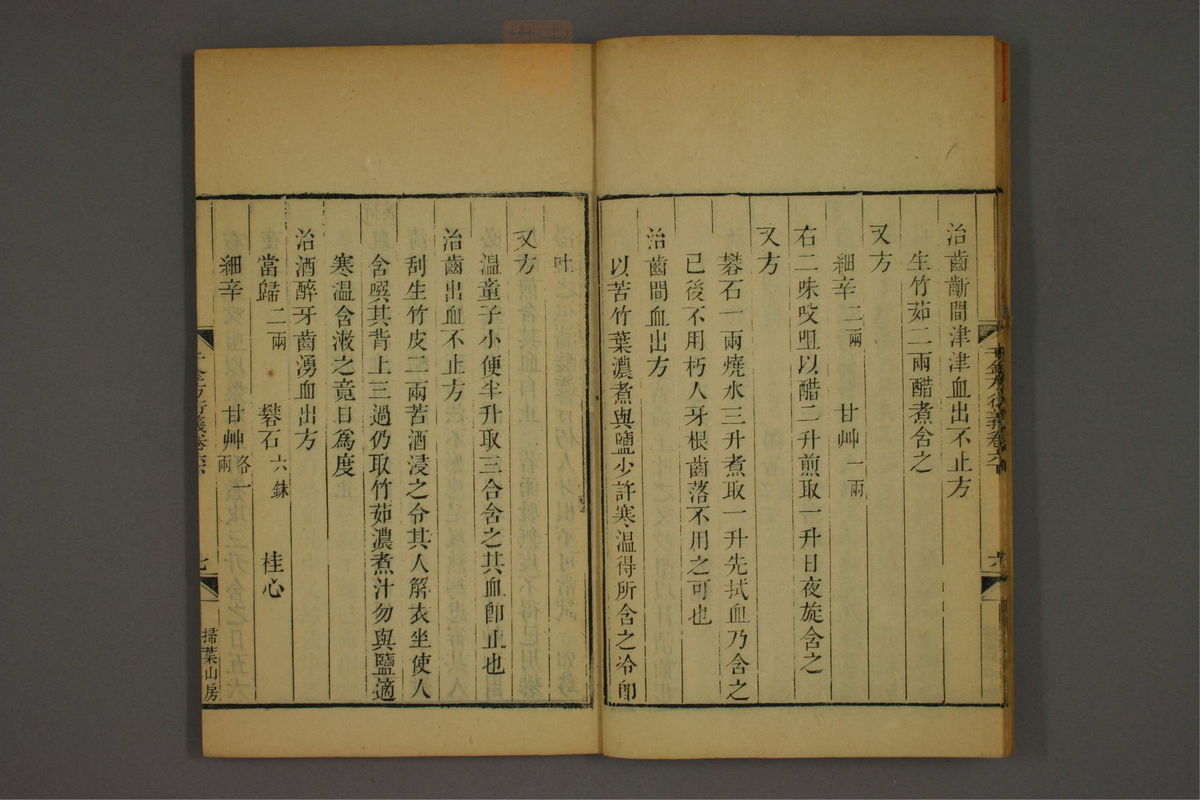 治齒齗間津津血出不止方
生竹茹二兩醋煮含之
又方
細辛二兩　甘艸一兩
右二味㕮咀以醋二升煎取一升日夜旋含之
又方
礬石一兩燒水三升煮取一升先拭血乃含之
已後不用朽人牙根齒落不用之可也
治齒間血出方
以苦竹葉濃煮與鹽少許寒溫得所含之冷卽
吐之
又方
溫童子小便半升取三合含之其血卽止也
治齒出血不止方
刮生竹皮二兩苦酒浸之令其人解衣坐使人
含噀其背上三過仍取竹茹濃煮汁勿與鹽適
寒溫含漱之竟日爲度
治酒醉牙齒湧血出方
當歸二兩　礬石六銖　桂心
細辛　甘艸各一兩
千金方衍義卷六
六
千金方衍義卷六
七
掃葉山房